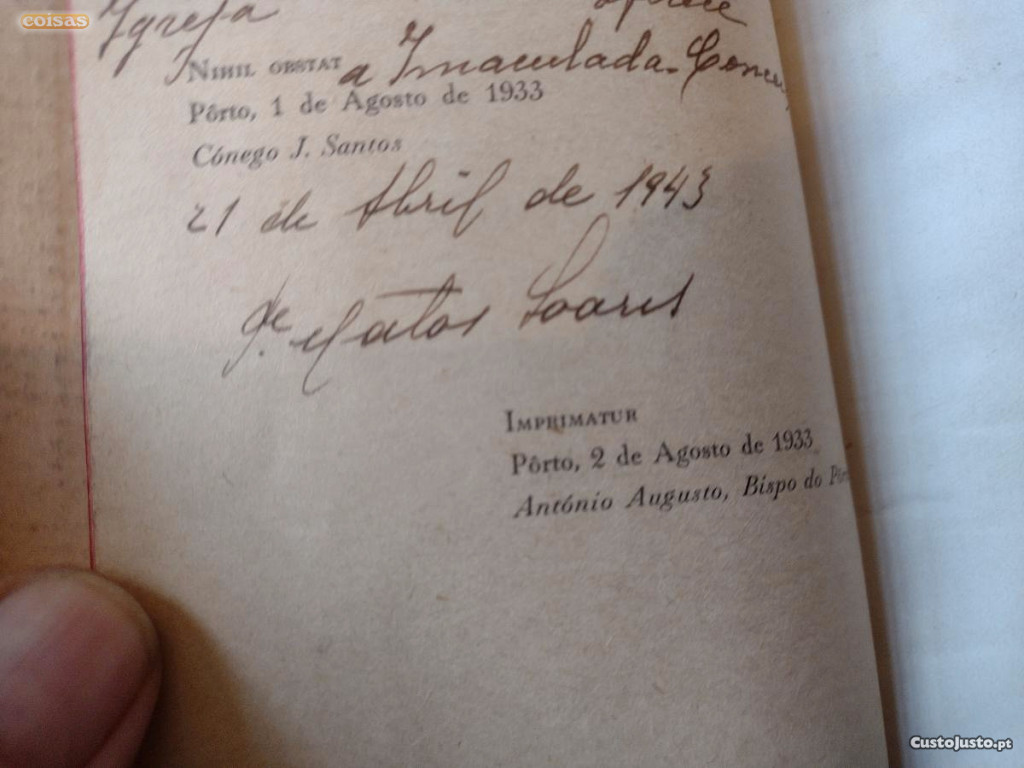 coisas
Igreja oferece
NIHIL OBSTAT a Imaculada Conc
Pôrto, 1 de Agosto de 1933
Cónego J. Santos
21 de Abril de 1943
Matos Soares
IMPRIMATUR
Pôrto, 2 de Agosto de 1933
António Augusto, Bispo do
CustoJusto.pt